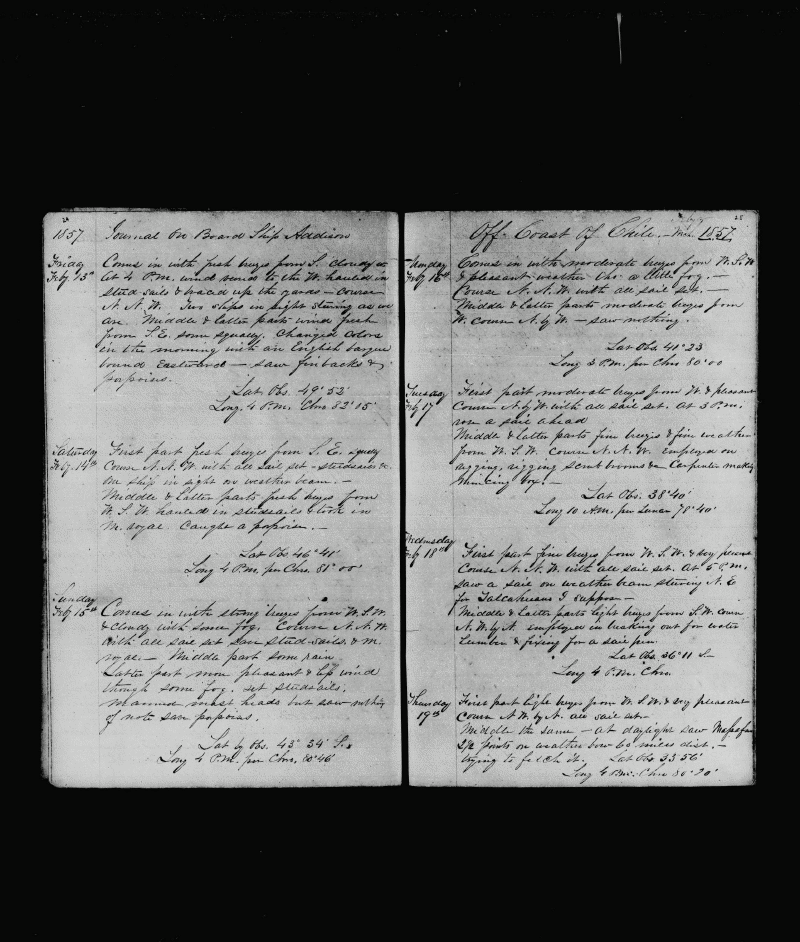 1857 Journal On Board Ship Addison
Friday
Feby. 13th
Comes in with fresh breezes from S. cloudy &c
At 4 P.M. wind to the W. hauled in
stud sails & braced up the yards – course
N. N. W. Two ships in sight steering as we
are. Middle & latter parts wind fresh
from S. E. some squally. Changed colors
in the morning with an English barque
bound Eastward – saw finbacks &
porpoises.
Lat Obs. 49° 52'
Long. 4 P.M. Chro 82° 15'
Saturday
Feby. 14th
First part fresh breezes from S. E. squally
Course N. N. W. with all sail set – studsails &c.
One ship in sight on weather beam. –
Middle & Latter parts fresh breezes from
W. S. W. hauled in studsails & took in
m. royal. Caught a porpoise. –
Lat Obs. 46° 41'
Long 4 P.M. per Chro. 81° 00'
Sunday
Feby 15th
Comes in with strong breezes from W. S. W.
& cloudy with some fog. Course N. N. W.
with all sail set save stud-sails & m.
royal. – Middle part some rain
Latter part more pleasant & less wind
though some fog. set studsails.
Manned mast heads but saw nothing
of note save porpoises.
Lat by Obs. 43° 34' S.
Long 4 P.M. per Chro. 80° 46'
28
Off Coast Of Chile. – 1857
Monday
Feby 16th
Comes in with moderate breezes from W. S. W
& pleasant weather tho' a little fog. –
Course N. N. W. with all sail set. –
Middle & latter parts moderate breezes from
W. course N. by W. – saw nothing.
Lat Obs. 41° 23
Long 3 P.M. per Chro 80° 00
Tuesday
Feby 17
First part moderate breezes from W. & pleasant
Course N. by W. with all sail set. At 3 P.M.
saw a sail ahead
Middle & latter parts fine breezes & fine weather
from W. S. W. course N. N. W. Employed on
rigging, rigging brooms &c Carpenter making
mincing box. –
Lat Obs. 38° 40'
Long 10 A.M. per Lunar 78° 40'
Wednesday
Feby 18th
First part fine breezes from W. S. W. & very pleasant
Course N. N. W. with all sail set. At 5 P.M.
saw a sail on weather beam steering N. E
for Talcahuano I suppose –
Middle & Latter parts light breezes from S. W. course
N. W. by N. employed in breaking out for water
Lumber & fixing for a sail pen
Lat Obs. 36° 11 S. –
Long 4 P.M. Chro.
Thursday
19th
First part light breezes from W. S. W. & very pleasant
Course N. W. by N. all sail set –
Middle the same – at daylight saw Massafuera
2½ points on weather bow 60 miles dist. –
trying to fetch it. Lat Obs 33° 56'
Long 4 P.M. Chro 80° 20'